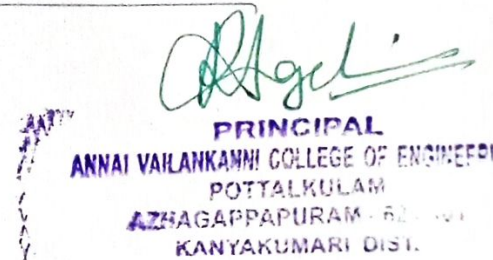 PRINCIPAL
ANNAI VAILANKANNI COLLEGE OF
POTTALKULAM
AZHAGAPPAPURAM
KANYAKUMARI DIST.